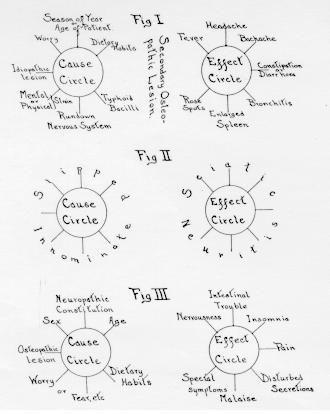 Fig I
Season of Year
or
Age of Patient
Worry
Dietary
Habits
Idiopathic
lesion
Cause
Circle
Mental
or
Physical
Strain
Typhoid
Bacilli
Rundown
Nervous System
Secondary Osteo-
pathic Lesion.
Headache
Fever
Backache
Effect
Circle
Constipation
or
Diarrhoea
Rose
Spots
Bronchitis
Enlarged
Spleen
Fig II
Slipped
Innominate
Cause
Circle
Sciatic
Neuritis
Effect
Circle
Fig III
Neuropathic
Constitution
Sex
Age
Osteopathic
Lesion
Cause
Circle
Worry
or
Fear, etc
Dietary
Habits
Intestinal
Trouble
Nervousness
Insomnia
Effect
Circle
Pain
Special
Symptoms
Disturbed
Secretions
Malaise